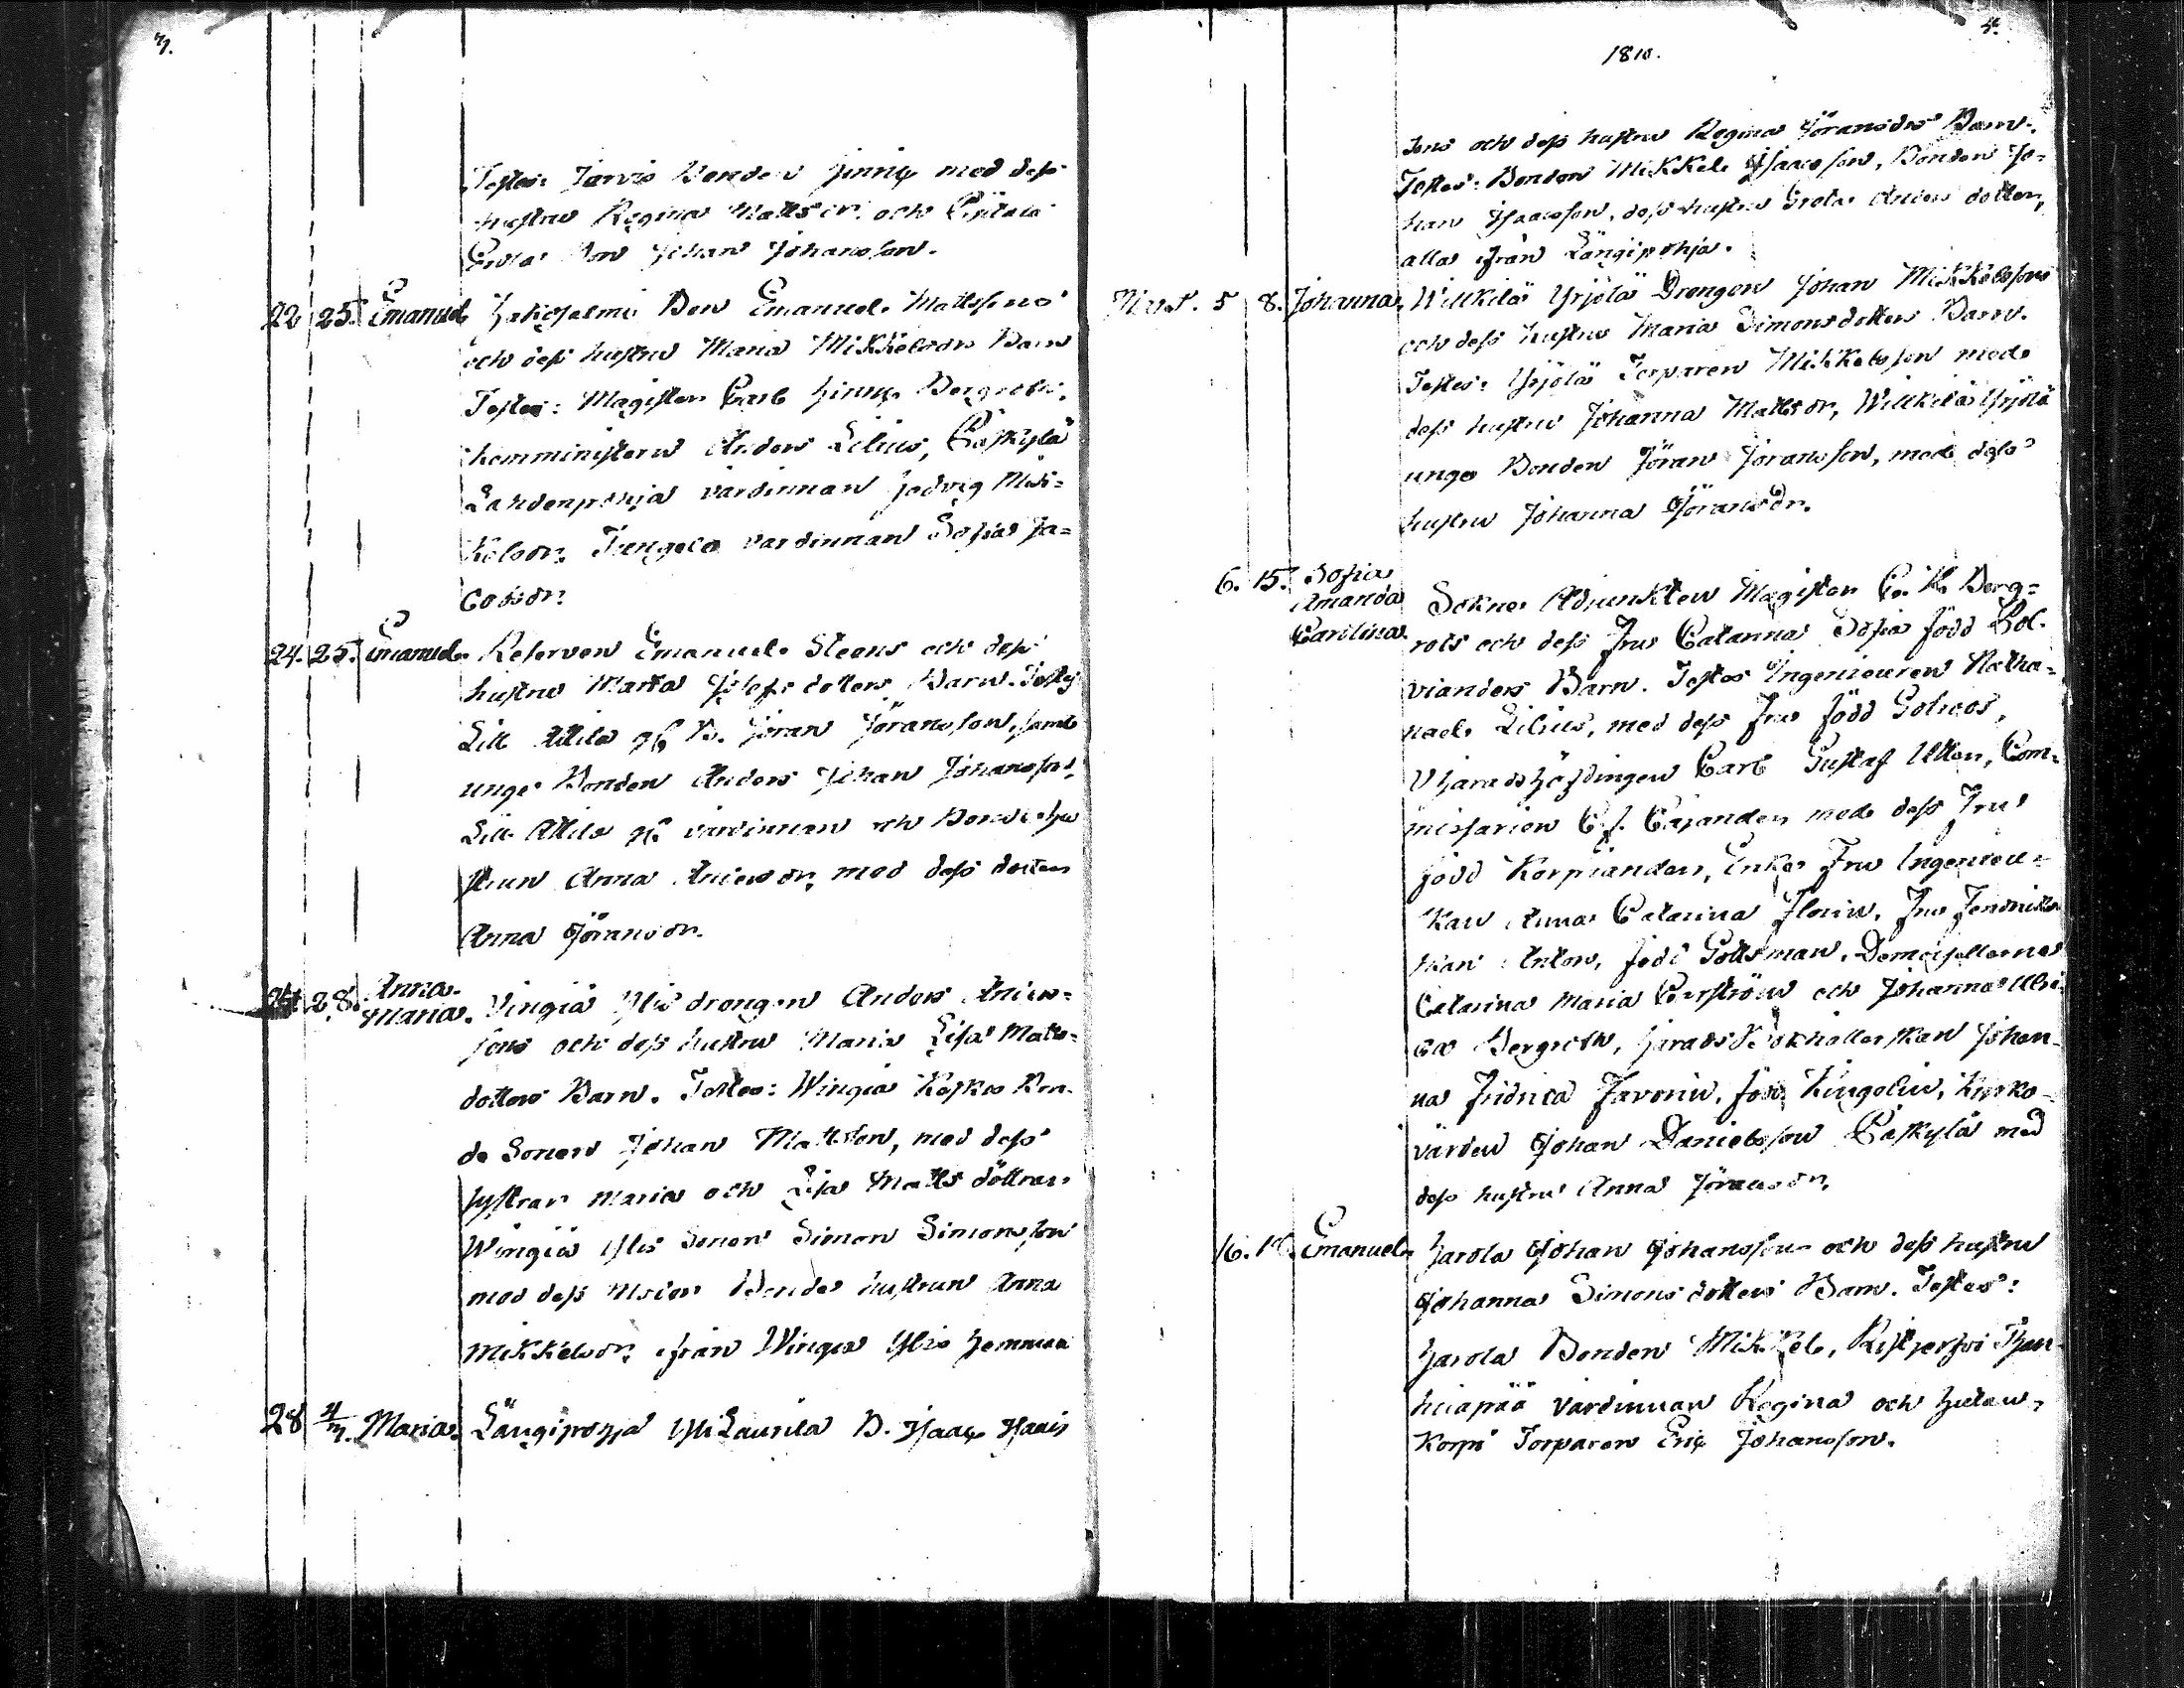 1810.
4.
Testes: Jarvis Bonden Hinric med dess
hustru Regina Mattsdr. och
Johan Johansson.
22 25. Emanuel. Bon Emanuel Mattssons
och dess hustru Maria Mikkelsdrs Barn
Testes: Magister Carl Hinric Bergroth,
Komministern Anders Lilius, Caskylä
Lahdenpohja värdinnan Hedvig Mic=
kelsdr. värdinnan Sofia Ja=
cobsdr.
24. 25. Emanuel. Reserven Emanuel Steens och dess
hustru Maria Josefsdotters Barn. Testes
Lill Attila B. Jöran Jöransson, samt
unge Bonden Anders Johan Johansson,
Lill Attila värdinnan och Bonde hu
strun Anna Andersdr. med dess dotter
Anna Göransdr.
28. Anna Maria. Vingiä Ylis drengen Anders Anders=
sons och dess hustru Maria Lisa Matts=
dotters Barn. Testes: Wingiä Kaskis Bon=
de Sonen Johan Mattsson, med dess
systrar Maria och Lisa Matts döttrar
Wingiä Ylis Sonen Simon Simonsson
med dess Moder Bonde hustrun Anna
Mikkelsdr. från Wingiä Ylis hemman
28 4/7. Maria. Längipohja Yli Laurila B. Isaac Isaacs
sons och dess hustru Regina Göransdrs Barn.
Testes: Bonden Mikkel Isaacsson, Bonden Jo=
han Isaacsson, dess hustru Greta Anders dotter,
alla från Längipohja.
5 8. Johanna. Willkilä Yrjölä Drengen Johan Mikkelssons
och dess hustru Maria Simonsdotters Barn.
Testes: Yrjölä Torparen Mikkelsson med
dess hustru Johanna Mattsdr, Willkilä Yrjölä
unge Bonden Jöran Jöransson, med dess
hustru Johanna Göransdr.
6. 15. Sofia Amanda Carolina. Sokne Adjunkten Magister C. H. Berg=
rots och dess Fru Catarina Sofia född Pol=
vianders Barn. Testes Ingenieuren Natha=
nael Lilius, med dess Fru född
Häradshöfdingen Carl Gustaf Utter, Com=
missarien C. J. Cajander med dess Fru
född Korpiander, Enke Fru Ingenieu=
skan Anna Catarina Florin, Fru
född Gottsman, Domoisellerna
Catarina Maria och Johanna Ulri=
ca Bergroth, Härads Bokhållerskan Johan=
na Fridrica Favorin, född Kingelin, Kyrko=
värden Johan Danielsson Caskylä med
dess hustru Anna Jöransdr.
16. Emanuel. Harola Johan Johanssons och dess hustru
Johanna Simonsdotters Barn. Testes:
Harola Bonden Mikkel,
värdinnan Regina och
Korpi Torparen Eric Johansson.